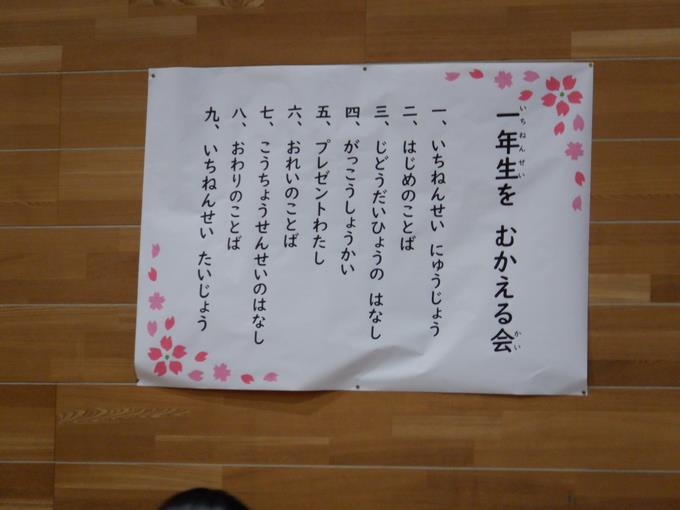 一年生を むかえる会
いちねんせい
かい
一、いちねんせい にゅうじょう
二、はじめのことば
三、じどうだいひょうの はなし
四、がっこうしょうかい
五、プレゼントわたし
六、おれいのことば
七、こうちょうせんせいのはなし
八、おわりのことば
九、いちねんせい たいじょう